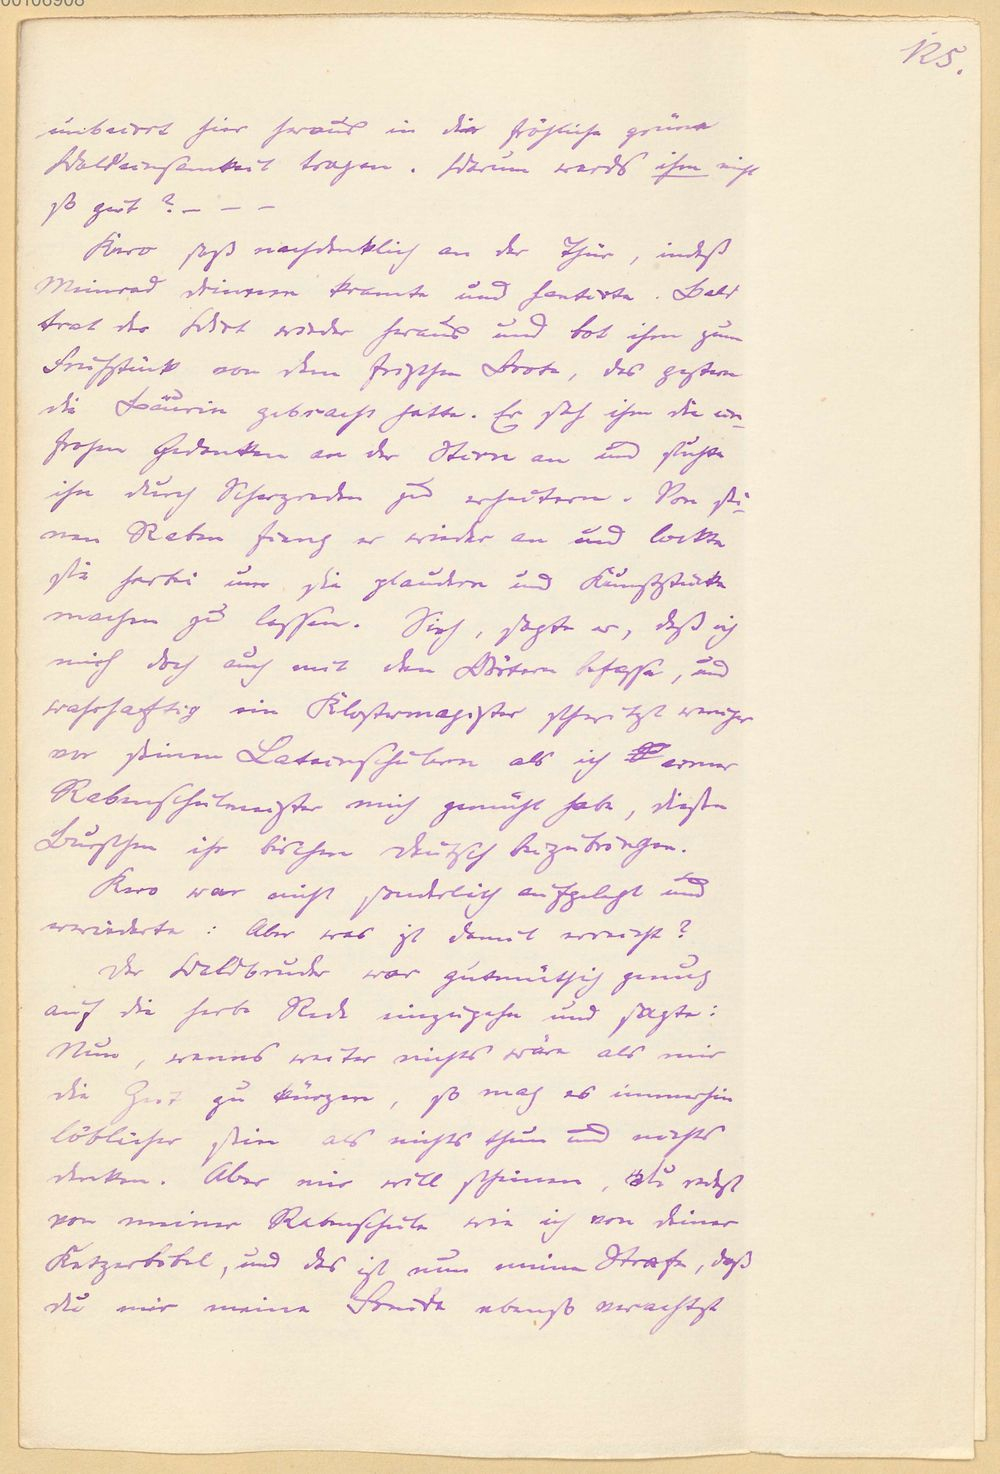 00106908
125.
unbeirrt hier heraus in die fröhliche grüne
Waldeinsamkeit tragen. Warum wards ihm nicht
so gut? – – –
Kero saß nachdenklich an der Thür, indeß
Meinrad drinnen kramte und hantirte. Bald
trat der Wirt wieder heraus und bot ihm zum
Frühstück von dem frischen Brote, das gestern
die Bäurin gebracht hatte. Er sah ihm die un-
frohen Gedanken an der Stirn an und suchte
ihn durch Scherzreden zu erheitern. Von sei-
nen Raben fieng er wieder an und lockte
sie herbei um sie plaudern und Kunststücke
machen zu lassen. Sieh, sagte er, daß ich
mich doch auch mit den Wörtern befasse, und
wahrhaftig ein Klostermagister schwitzt weniger
vor seinen Lateinschülern als ich armer
Rabenschulmeister mich gemüht habe, diesen
Burschen ihr bischen Deutsch beizubringen.
Kero war nicht sonderlich aufgelegt und
erwiederte: Aber was ist damit erreicht?
Der Waldbruder war gutmüthig genug
auf die herbe Rede einzugehn und sagte:
Nun, wenns weiter nichts wäre als mir
die Zeit zu kürzen, so mag es immerhin
löblicher sein als nichts thun und nichts
denken. Aber mir will scheinen, du redest
von meiner Rabenschule wie ich von deiner
Ketzerbibel, und das ist nun meine Strafe, daß
du mir meine Freude ebenso verachtest